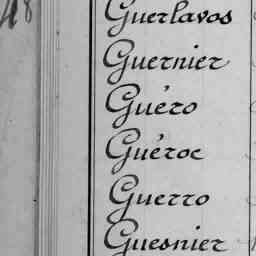 48
Guerlavos
Guernier
Guéro
Guéroc
Guerro
Guesnier